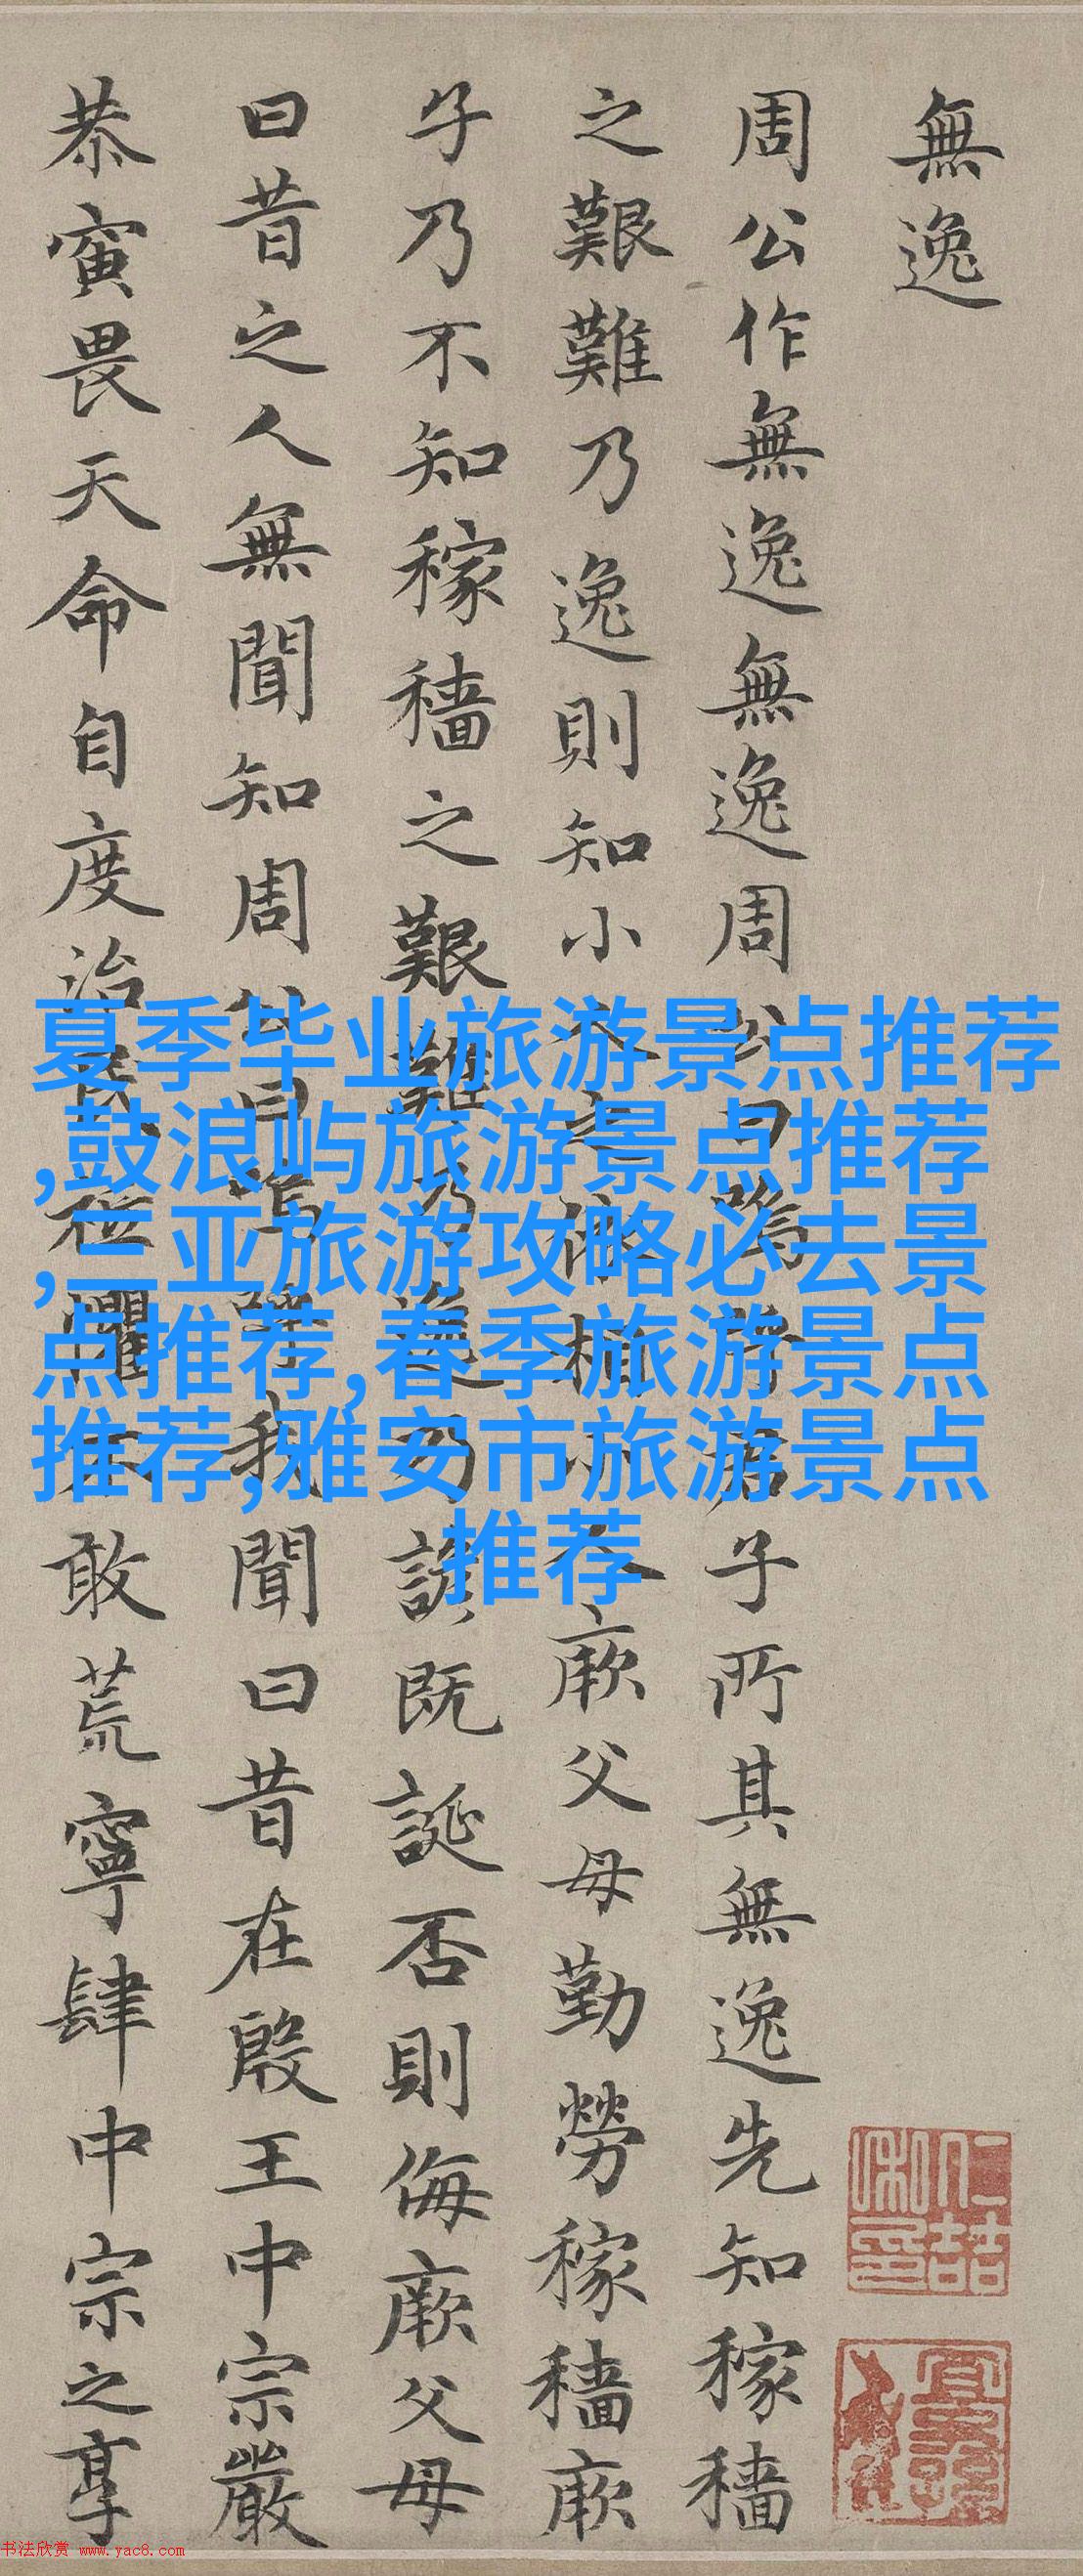 無逸
周公作無逸無逸周公曰嗚呼君子所其無逸先知稼穡
之艱難乃逸則知小人之依相小人厥父母勤勞稼穡厥
子乃不知稼穡之艱難乃逸乃諺既誕否則侮厥父母
曰昔之人無聞知周公曰嗚呼我聞曰昔在殷王中宗嚴
恭寅畏天命自度治民祗懼不敢荒寧肆中宗之享
夏季毕业旅游景点推荐
,鼓浪屿旅游景点推荐
,三亚旅游攻略必去景
点推荐,春季旅游景点
推荐,雅安市旅游景点
推荐
书法欣赏 www.yac8.com